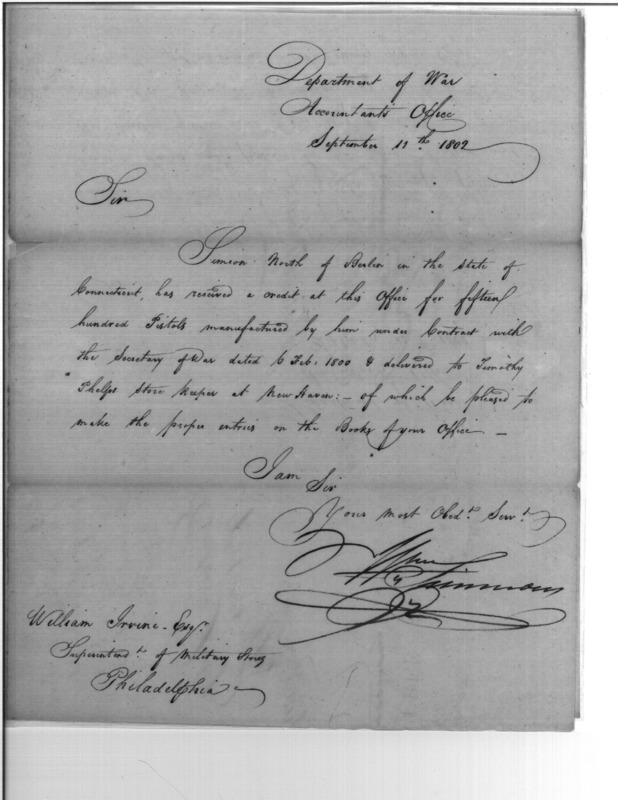 Department of War
Accountants Office
September 11th 1802
Sir
Simeon North of Berlin in the State of
Connecticut, has received a credit at this Office for fifteen
hundred Pistols manufactured by him under Contract with
the Secretary of War dated 6 Feb. 1800 & delivered to Timothy
Phelps Store Keeper at New Haven:— of which be pleased to
make the proper entries on the Books of your Office —
I am Sir
Your most Obedt. Servt.
Wm Simmons
William Irvine Esqr.
Superintendt. of Military Stores
Philadelphia